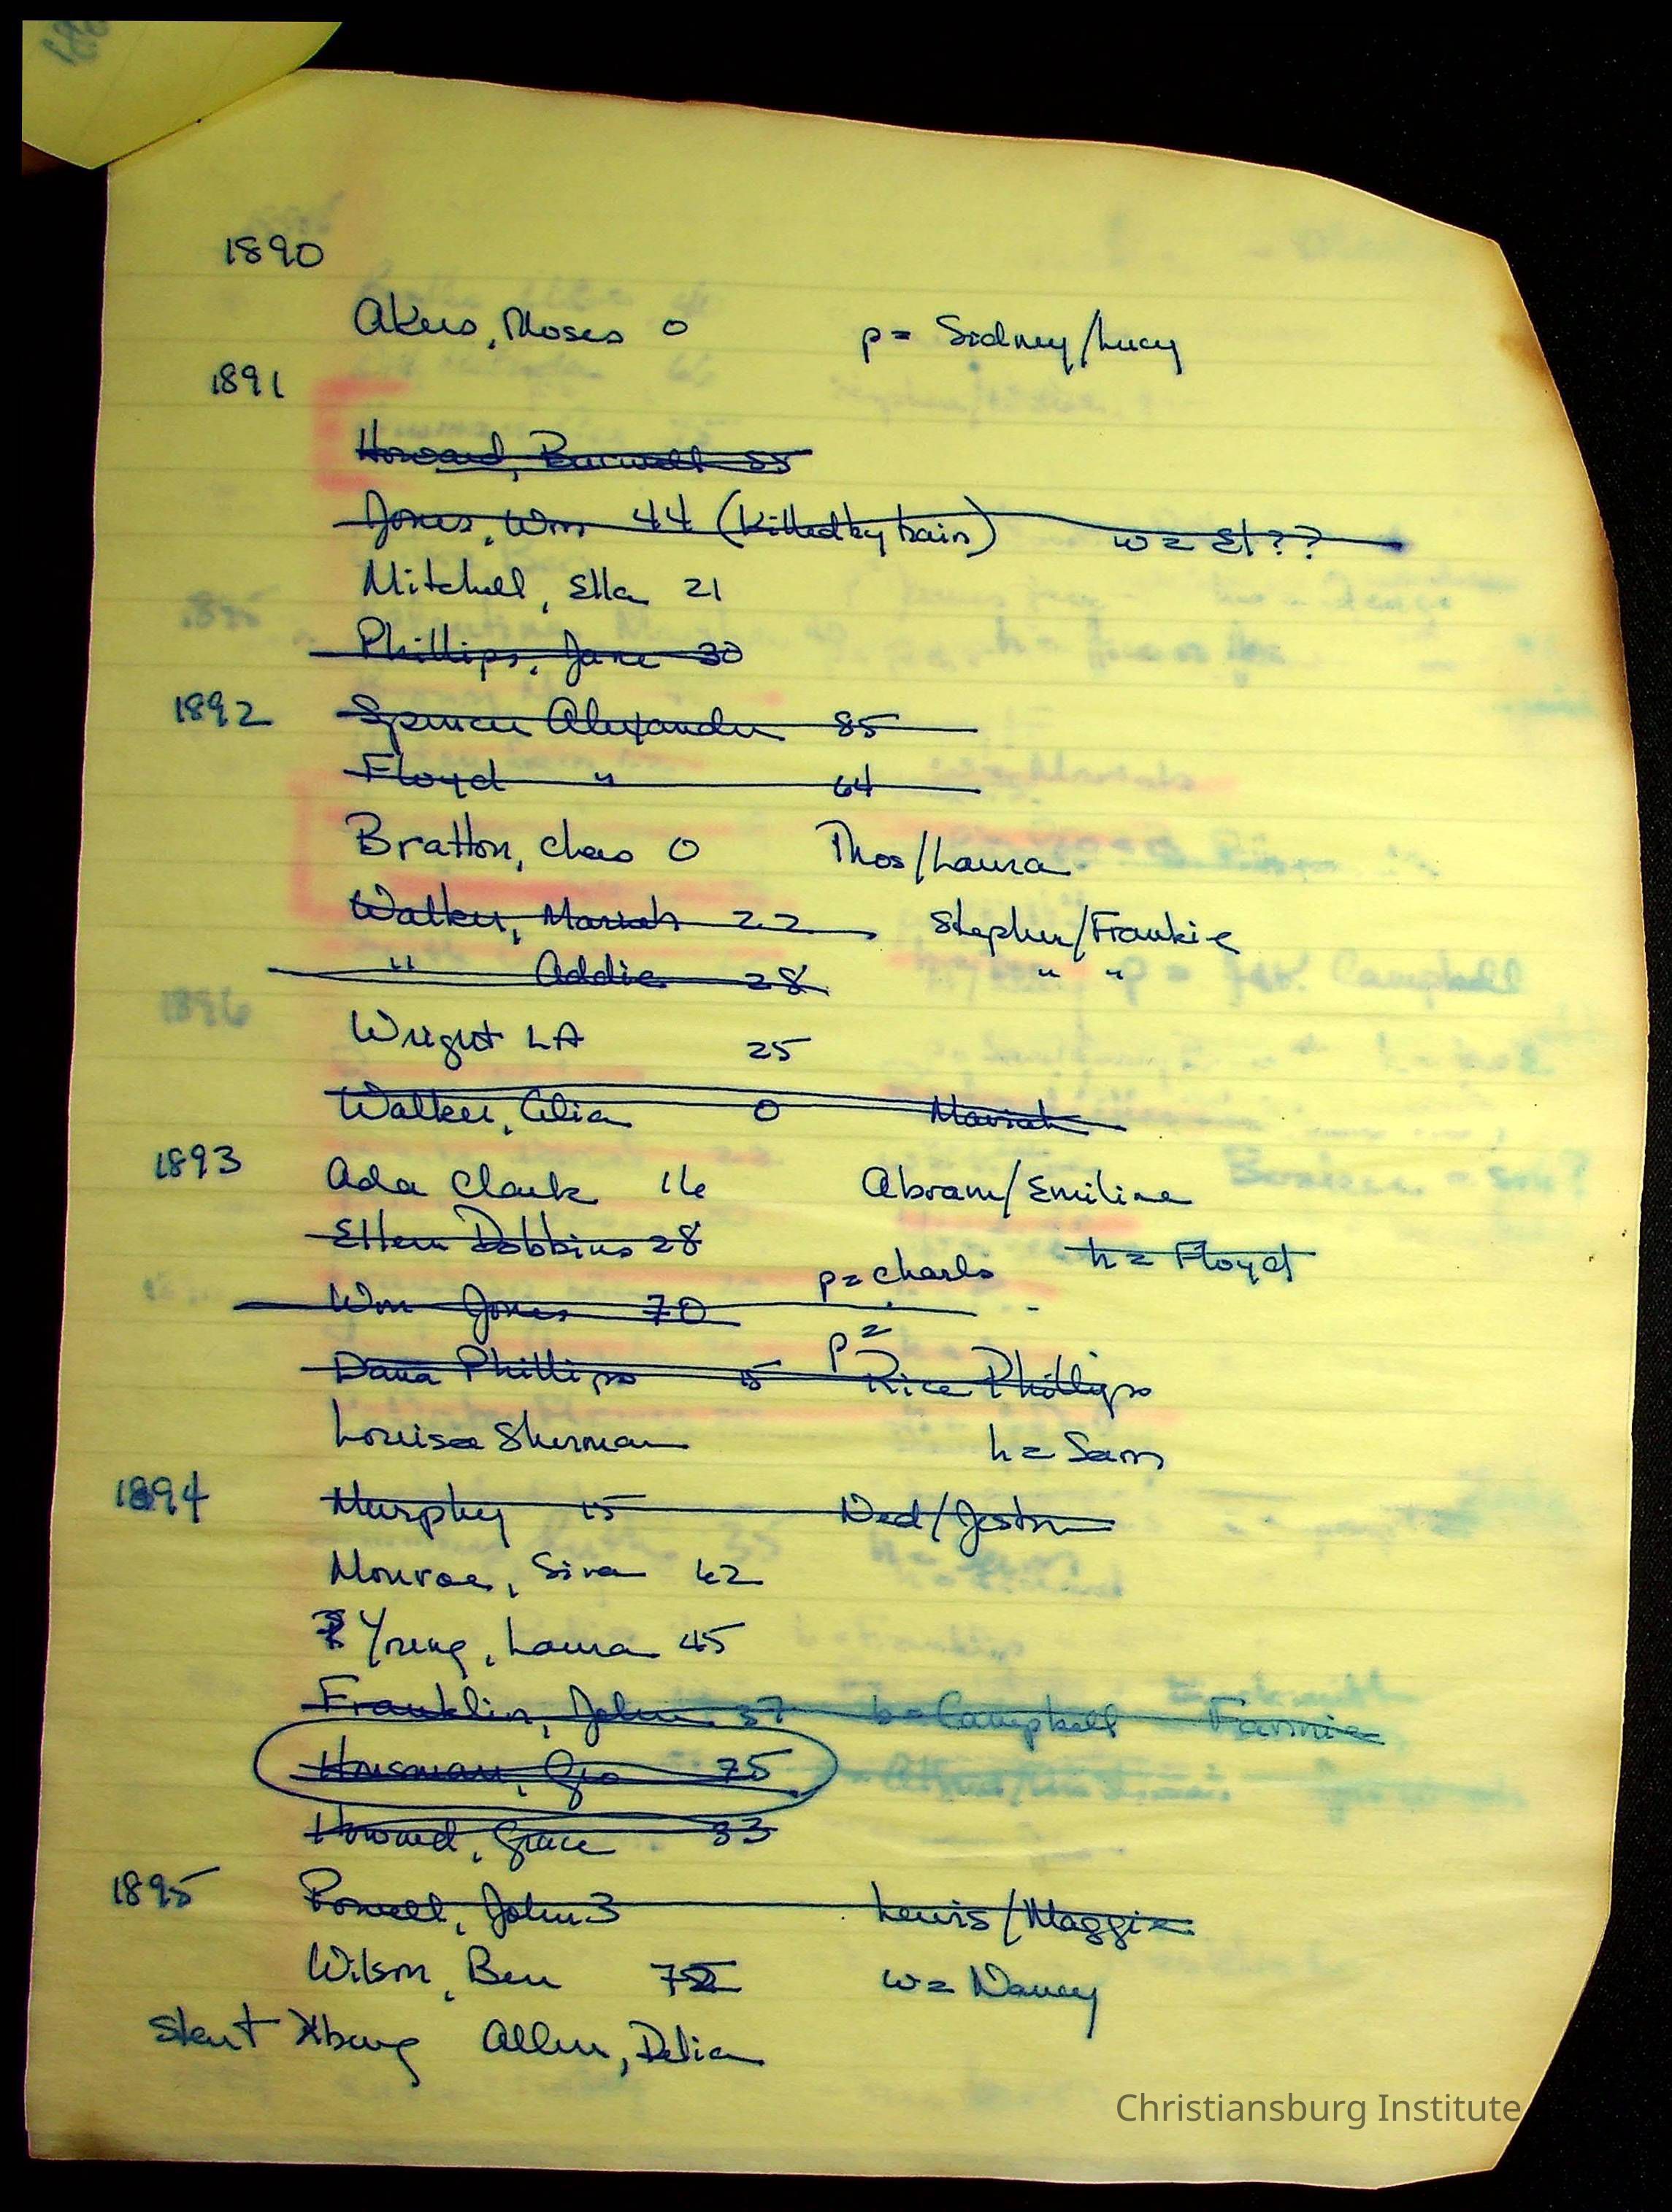 1890
Akers, Moses 0 p= Sidney/Lucy
1891
Howard, Burwell 55
Jones, Wm 44 (Killed by train) w= El??
Mitchell, Ella 21
Phillips, Jane 30
1892 Spencer Alexander 85
Floyd " 64
Bratton, Chas 0 Thos/Laura
Walker, Mariah 22 Stephen/Frankie
" Addie 28 " "
Wright LA 25
Walker, Celia 0 Mariah
1893 Ada Clark 16 Abram/Emiline
Ellen Dobbins 28 h= Floyd
p= Charls
Wm Jones 70
Dana Phillips 15 p= Rice Phillips
Louisa Sherman h= Sam
1894 Murphy 15 Ned/Jestin
Monroe, Sira 62
Young, Laura 45
Franklin, John 37 b=Campbell Fannie
Housman, Geo 75
Howard, Grace 33
1895 Powell, John 3 Lewis/Maggie
Wilson, Ben 72 w= Nancy
Start Xburg Allen, Delia
Christiansburg Institute